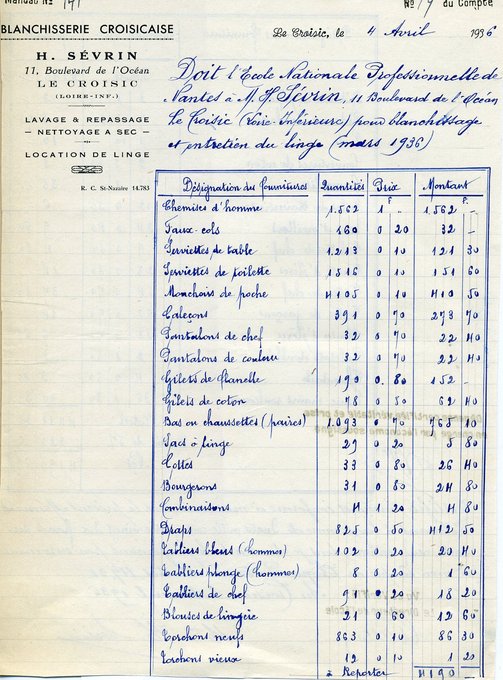 Mandat No 191
No 19 du Compte
BLANCHISSERIE CROISICAISE
H. SÉVRIN
11, Boulevard de l'Océan
LE CROISIC
(LOIRE-INF.)
LAVAGE & REPASSAGE
— NETTOYAGE A SEC —
LOCATION DE LINGE
R. C. St-Nazaire 14.783
Le Croisic, le 4 Avril 1936
Doit l'Ecole Nationale Professionnelle de
Nantes à M. H. Sévrin, 11 Boulevard de l'Océan
Le Croisic (Loire-Inférieure) pour blanchissage
et entretien du linge (mars 1936)
Désignation des Fournitures Quantités Prix Montant
F. F.
Chemises d'homme 1.562 1 – 1.562 –
Faux-cols 160 0 20 32 –
Serviettes de table 1.213 0 10 121 30
Serviettes de toilette 1516 0 10 151 60
Mouchoirs de poche 4105 0 10 410 50
Caleçons 391 0 70 273 70
Pantalons de chef 32 0 70 22 40
Pantalons de couleur 32 0 70 22 40
Gilets de flanelle 190 0.80 152 –
Gilets de coton 78 0 80 62 40
Bas ou chaussettes (paires) 1.093 0 70 765 10
Sacs à linge 29 0 20 5 80
Cottes 33 0 80 26 40
Bourgerons 31 0 80 24 80
Combinaisons 4 1 20 4 80
Draps 825 0 50 412 50
Tabliers bleus (hommes) 102 0 20 20 40
Tabliers plonge (hommes) 8 0 20 1 60
Tabliers de chef 91 0 20 18 20
Blouses de lingère 21 0 60 12 60
Torchons neufs 863 0 10 86 30
Torchons vieux 12 0 10 1 20
à Reporter 4190